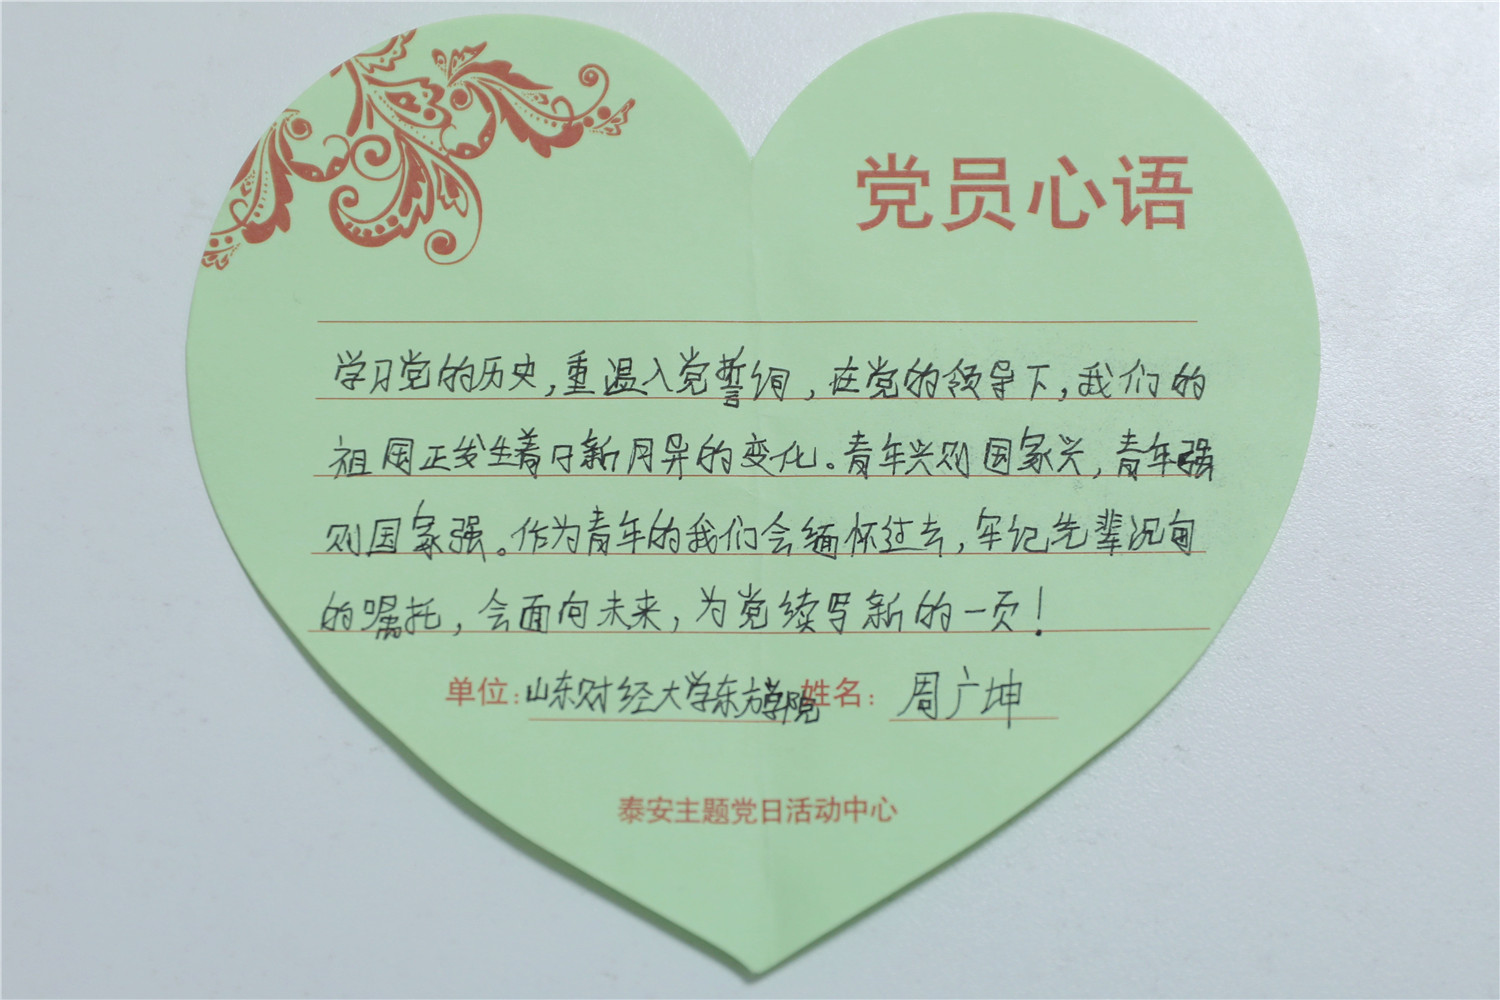 党员心语
学习党的历史,重温入党誓词,在党的领导下,我们的
祖国正发生着日新月异的变化。青年兴则国家兴,青年强
则国家强。作为青年的我们会缅怀过去,牢记先辈
的嘱托,会面向未来,为党续写新的一页!
单位:山东财经大学东方学院 姓名:周广坤
泰安主题党日活动中心